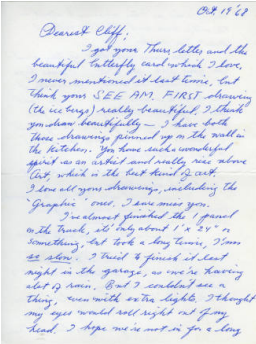 Oct 19 '68
Dearest Cliff:
I got your Thurs letter and the
beautiful butterfly card which I love.
I never mentioned it last time, but
think your SEE AM FIRST drawing
(the ice bergs) really beautiful. I think
you draw beautifully — I have both
those drawings pinned up on the wall in
the kitchen. You have such a wonderful
spirit as an artist and really rise above
Art, which is the best kind of art.
I love all your drawings, including the
"graphic" ones. I sure miss you.
I've almost finished the 1 panel
on the truck, it's only about 1' x 2 1/2' or
something, but took a long time, I'm
so slow. I tried to finish it last
night in the garage, as we're having
alot of rain. But I couldn't see a
thing, even with extra lights. I thought
my eyes would roll right out of my
head. I hope we're not in for a long